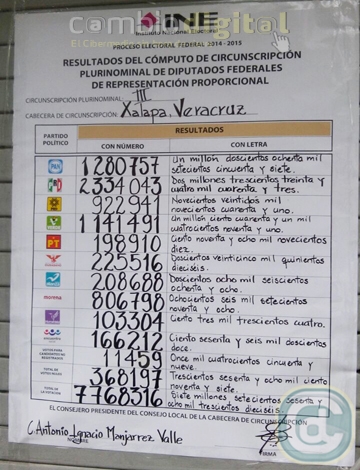 cambio digital
INE
Instituto Nacional Electoral
PROCESO ELECTORAL FEDERAL 2014 - 2015
RESULTADOS DEL CÓMPUTO DE CIRCUNSCRIPCIÓN
PLURINOMINAL DE DIPUTADOS FEDERALES
DE REPRESENTACIÓN PROPORCIONAL
CIRCUNSCRIPCIÓN PLURINOMINAL: III
CABECERA DE CIRCUNSCRIPCIÓN: Xalapa, Veracruz
PARTIDO POLÍTICO
RESULTADOS
CON NÚMERO
CON LETRA
PAN 1280757 Un millón doscientos ochenta mil
setecientos cincuenta y siete.
PRI 2334043 Dos millones trescientos treinta y
cuatro mil cuarenta y tres.
PRD 922941 Novecientos veintidós mil
novecientos cuarenta y uno.
VERDE 1141491 Un millón ciento cuarenta y un mil
cuatrocientos noventa y uno.
PT 198910 Ciento noventa y ocho mil novecientos
diez.
225516 Doscientos veinticinco mil quinientos
dieciséis.
208688 Doscientos ocho mil seiscientos
ochenta y ocho.
morena 806798 Ochocientos seis mil setecientos
noventa y ocho.
103304 Ciento tres mil trescientos cuatro.
166212 Ciento sesenta y seis mil doscientos
doce.
VOTOS PARA CANDIDATOS NO REGISTRADOS 11459 Once mil cuatrocientos cincuenta y
nueve.
TOTAL DE VOTOS NULOS 368197 Trescientos sesenta y ocho mil ciento
noventa y siete.
TOTAL DE LA VOTACIÓN 7768316 Siete millones setecientos sesenta y
ocho mil trescientos dieciséis.
EL CONSEJERO PRESIDENTE DEL CONSEJO LOCAL DE LA CABECERA DE CIRCUNSCRIPCIÓN
C. Antonio Ignacio Manjarrez Valle
NOMBRE
FIRMA